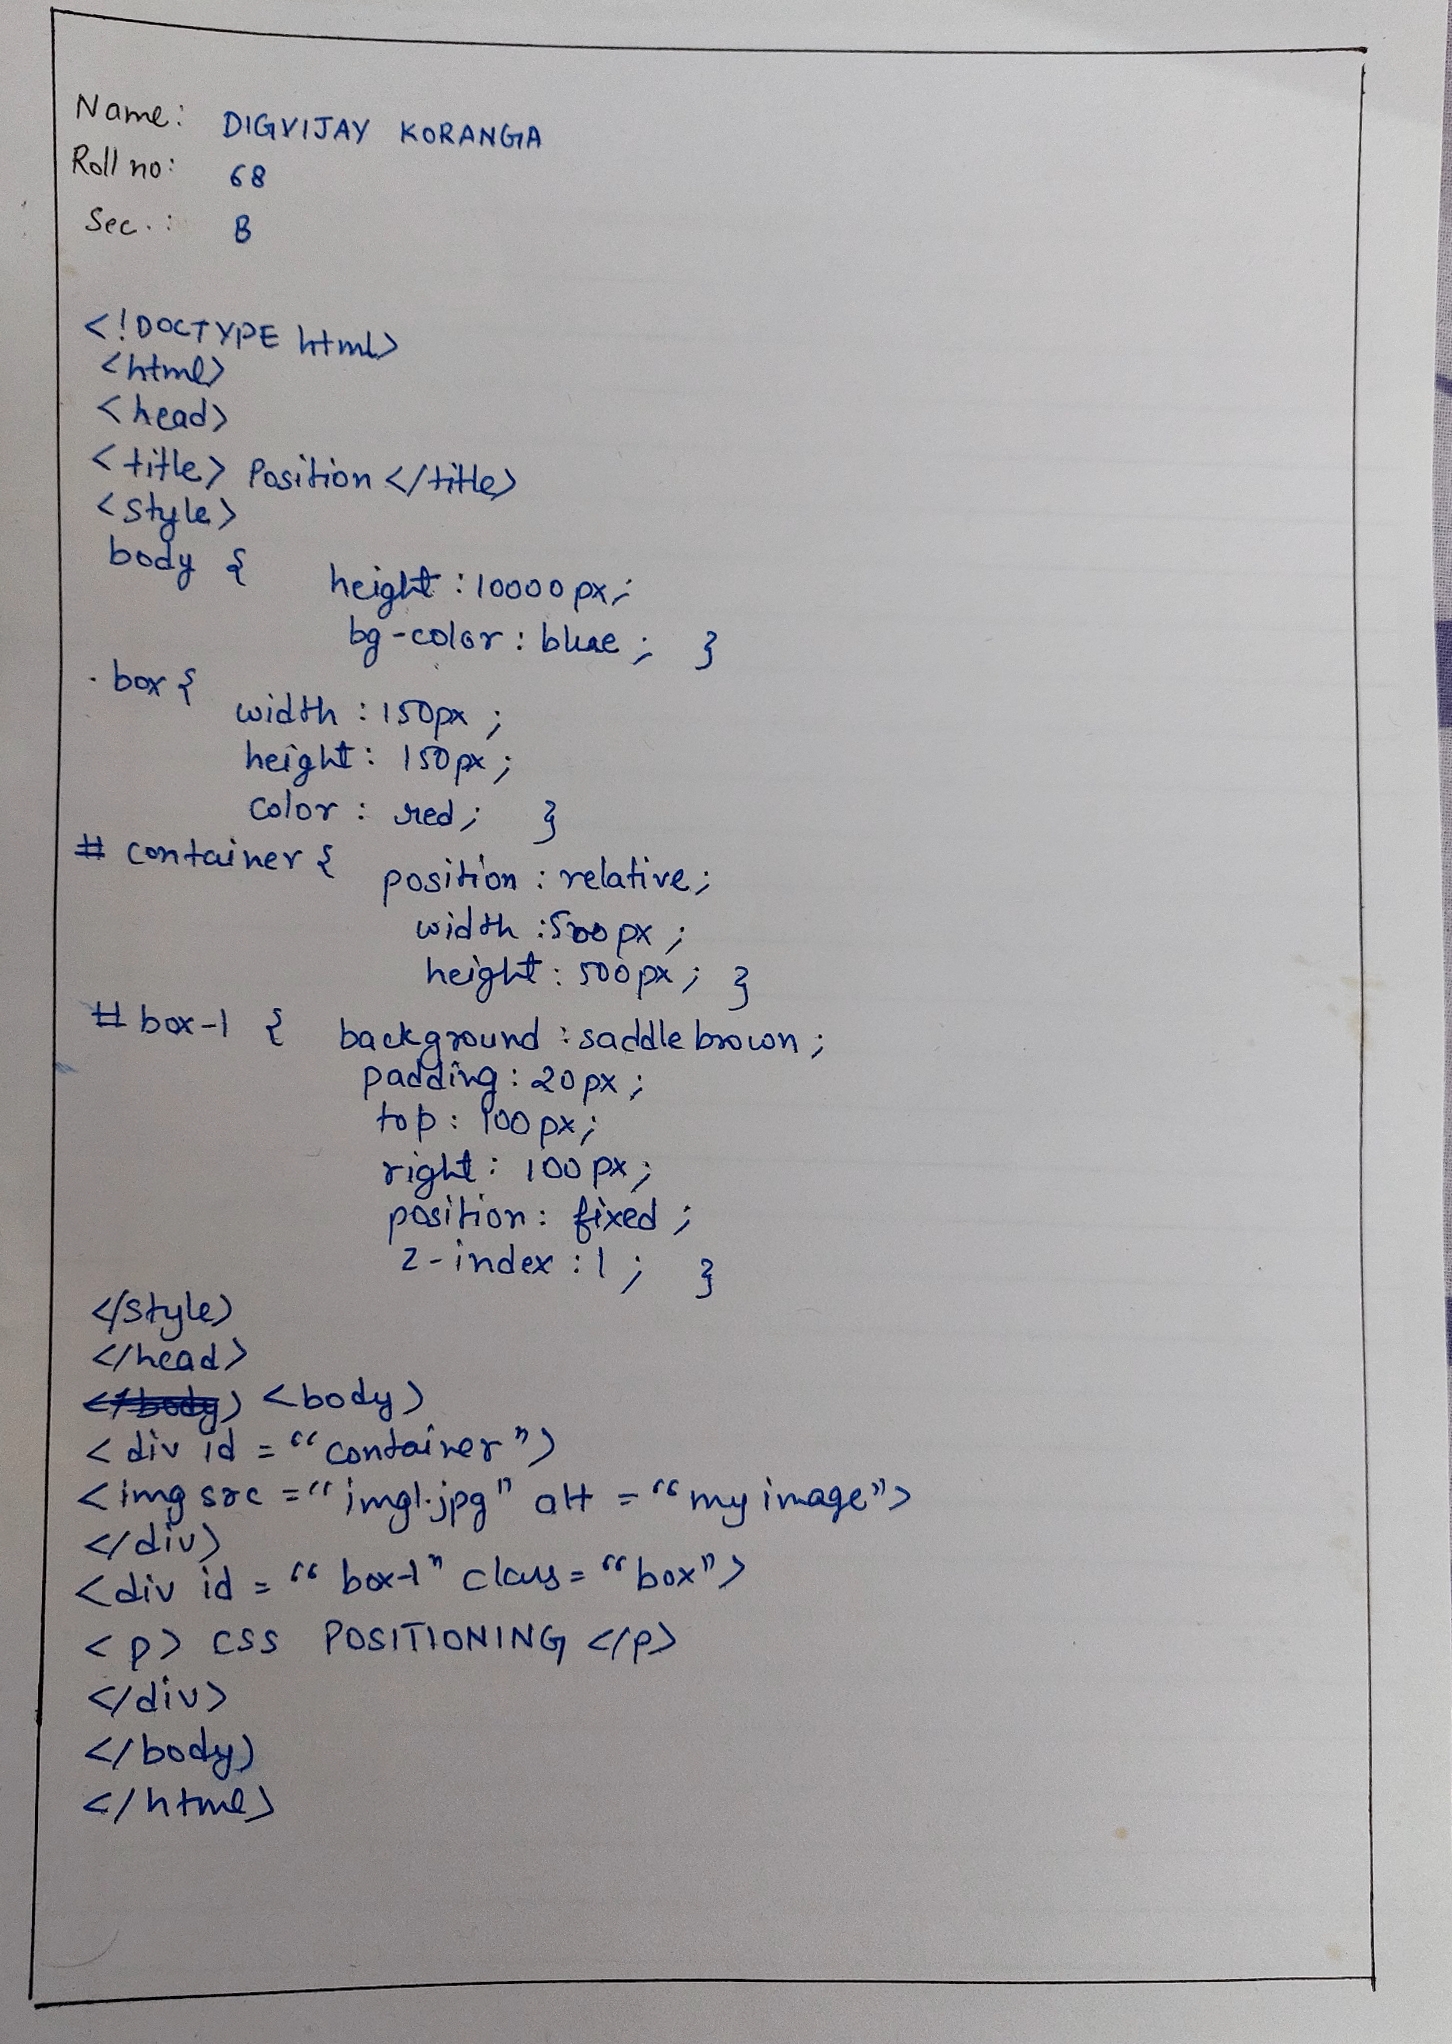 Name: DIGVIJAY KORANGA
Roll no: 68
Sec.: B
<!DOCTYPE html>
<html>
<head>
<title> Position </title>
<style>
body {
height : 10000 px;
bg-color : blue ; }
. box {
width : 150px ;
height : 150 px ;
color : red ; }
# container {
position : relative ;
width : 500 px ;
height : 500 px ; }
# box-1 { background : saddle brown ;
padding : 20 px ;
top : 100 px ;
right : 100 px ;
position : fixed ;
z-index : 1 ; }
</style>
</head>
</body> <body>
<div id = "container">
<img src = "img1.jpg" alt = "my image">
</div>
<div id = "box-1" class = "box">
<p> CSS POSITIONING </p>
</div>
</body>
</html>